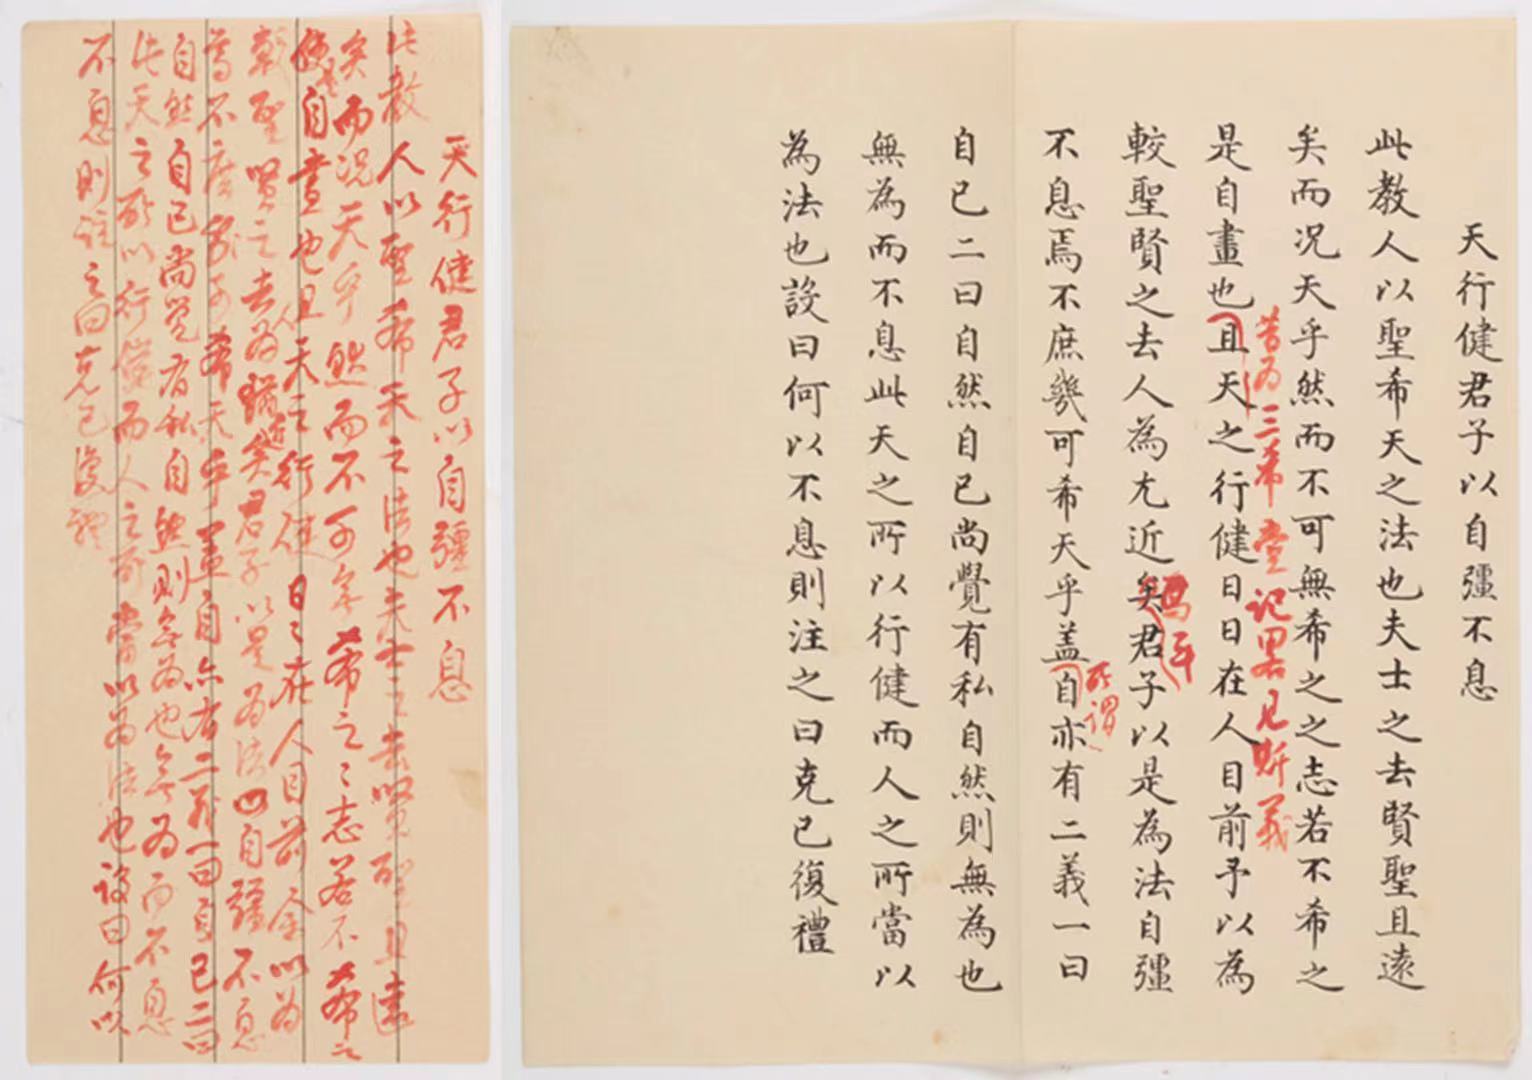 天行健君子以自彊不息
此教人以聖希天之法也夫士之去賢聖且遠
矣而况天乎然而不可無希之之志若不希之
昔為三希堂記畧見斯義
是自畫也且天之行健日日在人目前予以為
較聖賢之去人為尤近矣君子以是為法自彊
所謂
不息焉不庶幾可希天乎盖自亦有二義一曰
自已二曰自然自已尚覺有私自然則無為也
無為而不息此天之所以行健而人之所當以
為法也設曰何以不息則注之曰克已復禮
天行健君子以自彊不息
此教人以聖希天之法也夫士之去賢聖且遠
矣而况天乎然而不可無希之〻志若不希之
是自畫也且天之行健日〻在人目前余以為
較聖賢之去人為近矣君子以是為法自彊不息
焉不庶幾可希天乎盖自亦有二義一曰自已二曰
自然自已尚覺有私自然則無為也無為而不息
此天之所以行健而人之所當以為法也設曰何以
不息則注之曰克已復禮